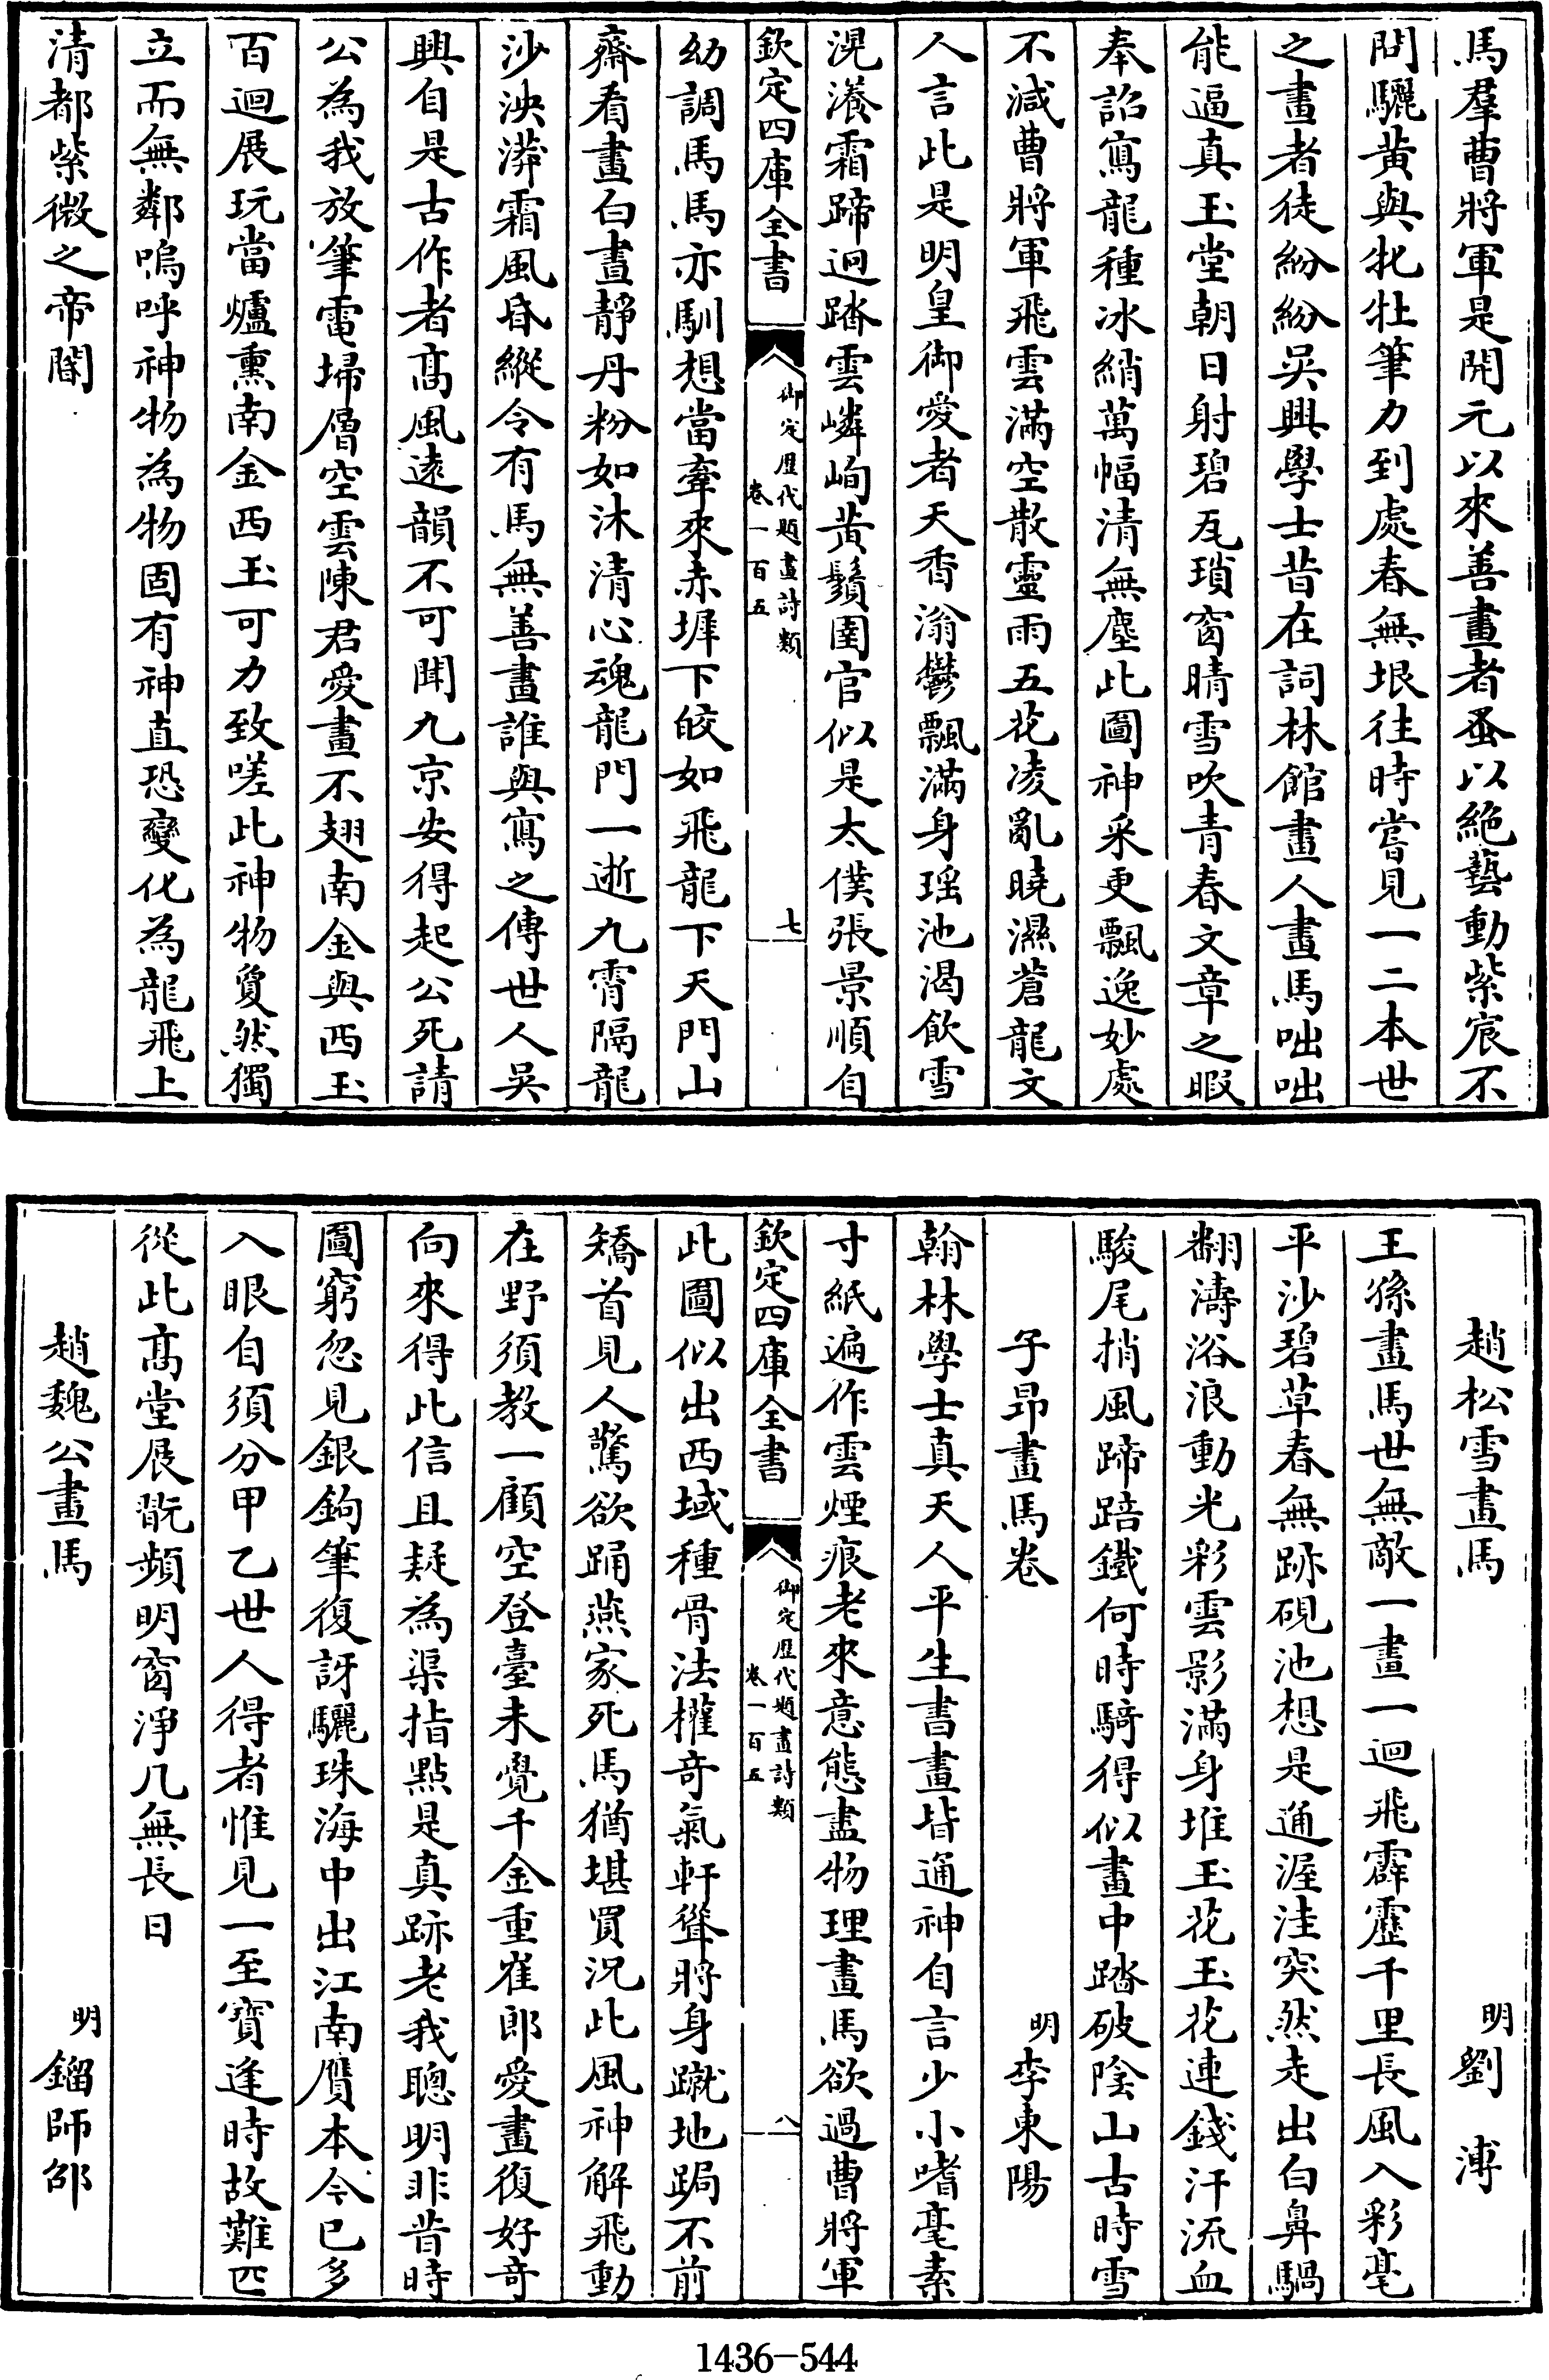 馬羣曹將軍是開元以來善畫者蚤以絶藝動紫宸不
問驪黄與牝牡筆力到處春無垠往時嘗見一二本世
之畫者徒紛紛吳興學士昔在詞林館畫人畫馬咄咄
能逼真玉堂朝日射碧瓦瑣窗晴雪吹青春文章之暇
奉詔寫龍種冰綃萬幅清無塵此圖神采更飄逸妙處
不減曹將軍飛雲滿空散靈雨五花凌亂曉濕蒼龍文
人言此是明皇御愛者天香滃鬱飄滿身瑶池渴飲雪
滉瀁霜蹄迥踏雲嶙峋黄鬚圉官似是太僕張景順自
欽定四庫全書
御定歴代題畫詩類
卷一百五
七
幼調馬馬亦馴想當牽來赤墀下皎如飛龍下天門山
齋看畫白晝靜丹粉如沐清心魂龍門一逝九霄隔龍
沙泱漭霜風昏縱令有馬無善畫誰與寫之傳世人吳
興自是古作者髙風逺韻不可聞九京安得起公死請
公為我放筆電埽層空雲陳君愛畫不翅南金與西玉
百迴展玩當爐熏南金西玉可力致嗟此神物夐然獨
立而無鄰嗚呼神物為物固有神直恐變化為龍飛上
清都紫微之帝閽
趙松雪畫馬
明劉溥
王孫畫馬世無敵一畫一迴飛霹靂千里長風入彩毫
平沙碧草春無跡硯池想是通渥洼突然走出白鼻騧
翻濤浴浪動光彩雲影滿身堆玉花玉花連錢汗流血
駿尾捎風蹄踣鐵何時騎得似畫中踏破陰山古時雪
子昂畫馬卷
明李東陽
翰林學士真天人平生書畫皆通神自言少小嗜毫素
寸紙遍作雲煙痕老來意態盡物理畫馬欲過曹將軍
欽定四庫全書
御定歴代題畫詩類
卷一百五
八
此圖似出西域種骨法權奇氣軒聳將身蹴地跼不前
矯首見人驚欲踊燕家死馬猶堪買況此風神解飛動
在野須教一顧空登臺未覺千金重崔郎愛畫復好奇
向來得此信且疑為渠指點是真跡老我聰明非昔時
圖窮忽見銀鉤筆復訝驪珠海中出江南贋本今已多
入眼自須分甲乙世人得者惟見一至寶逢時故難匹
從此髙堂展翫頻明窗淨几無長日
趙魏公畫馬
明鎦師邵
1436-544